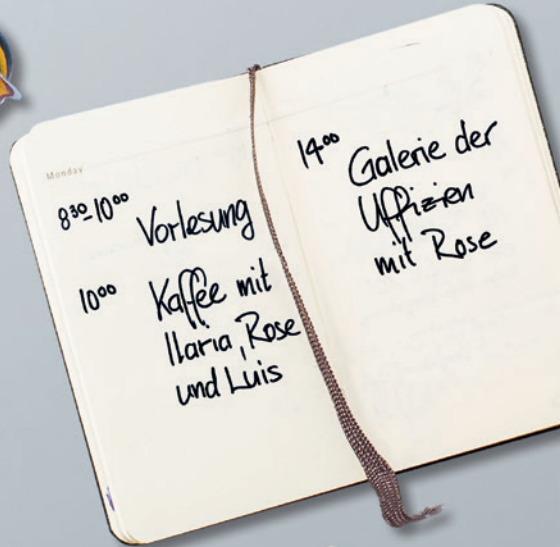 Monday
8³⁰-10⁰⁰ Vorlesung
10⁰⁰ Kaffee mit
Ilaria, Rose
und Luis
14⁰⁰ Galerie der
Uffizien
mit Rose